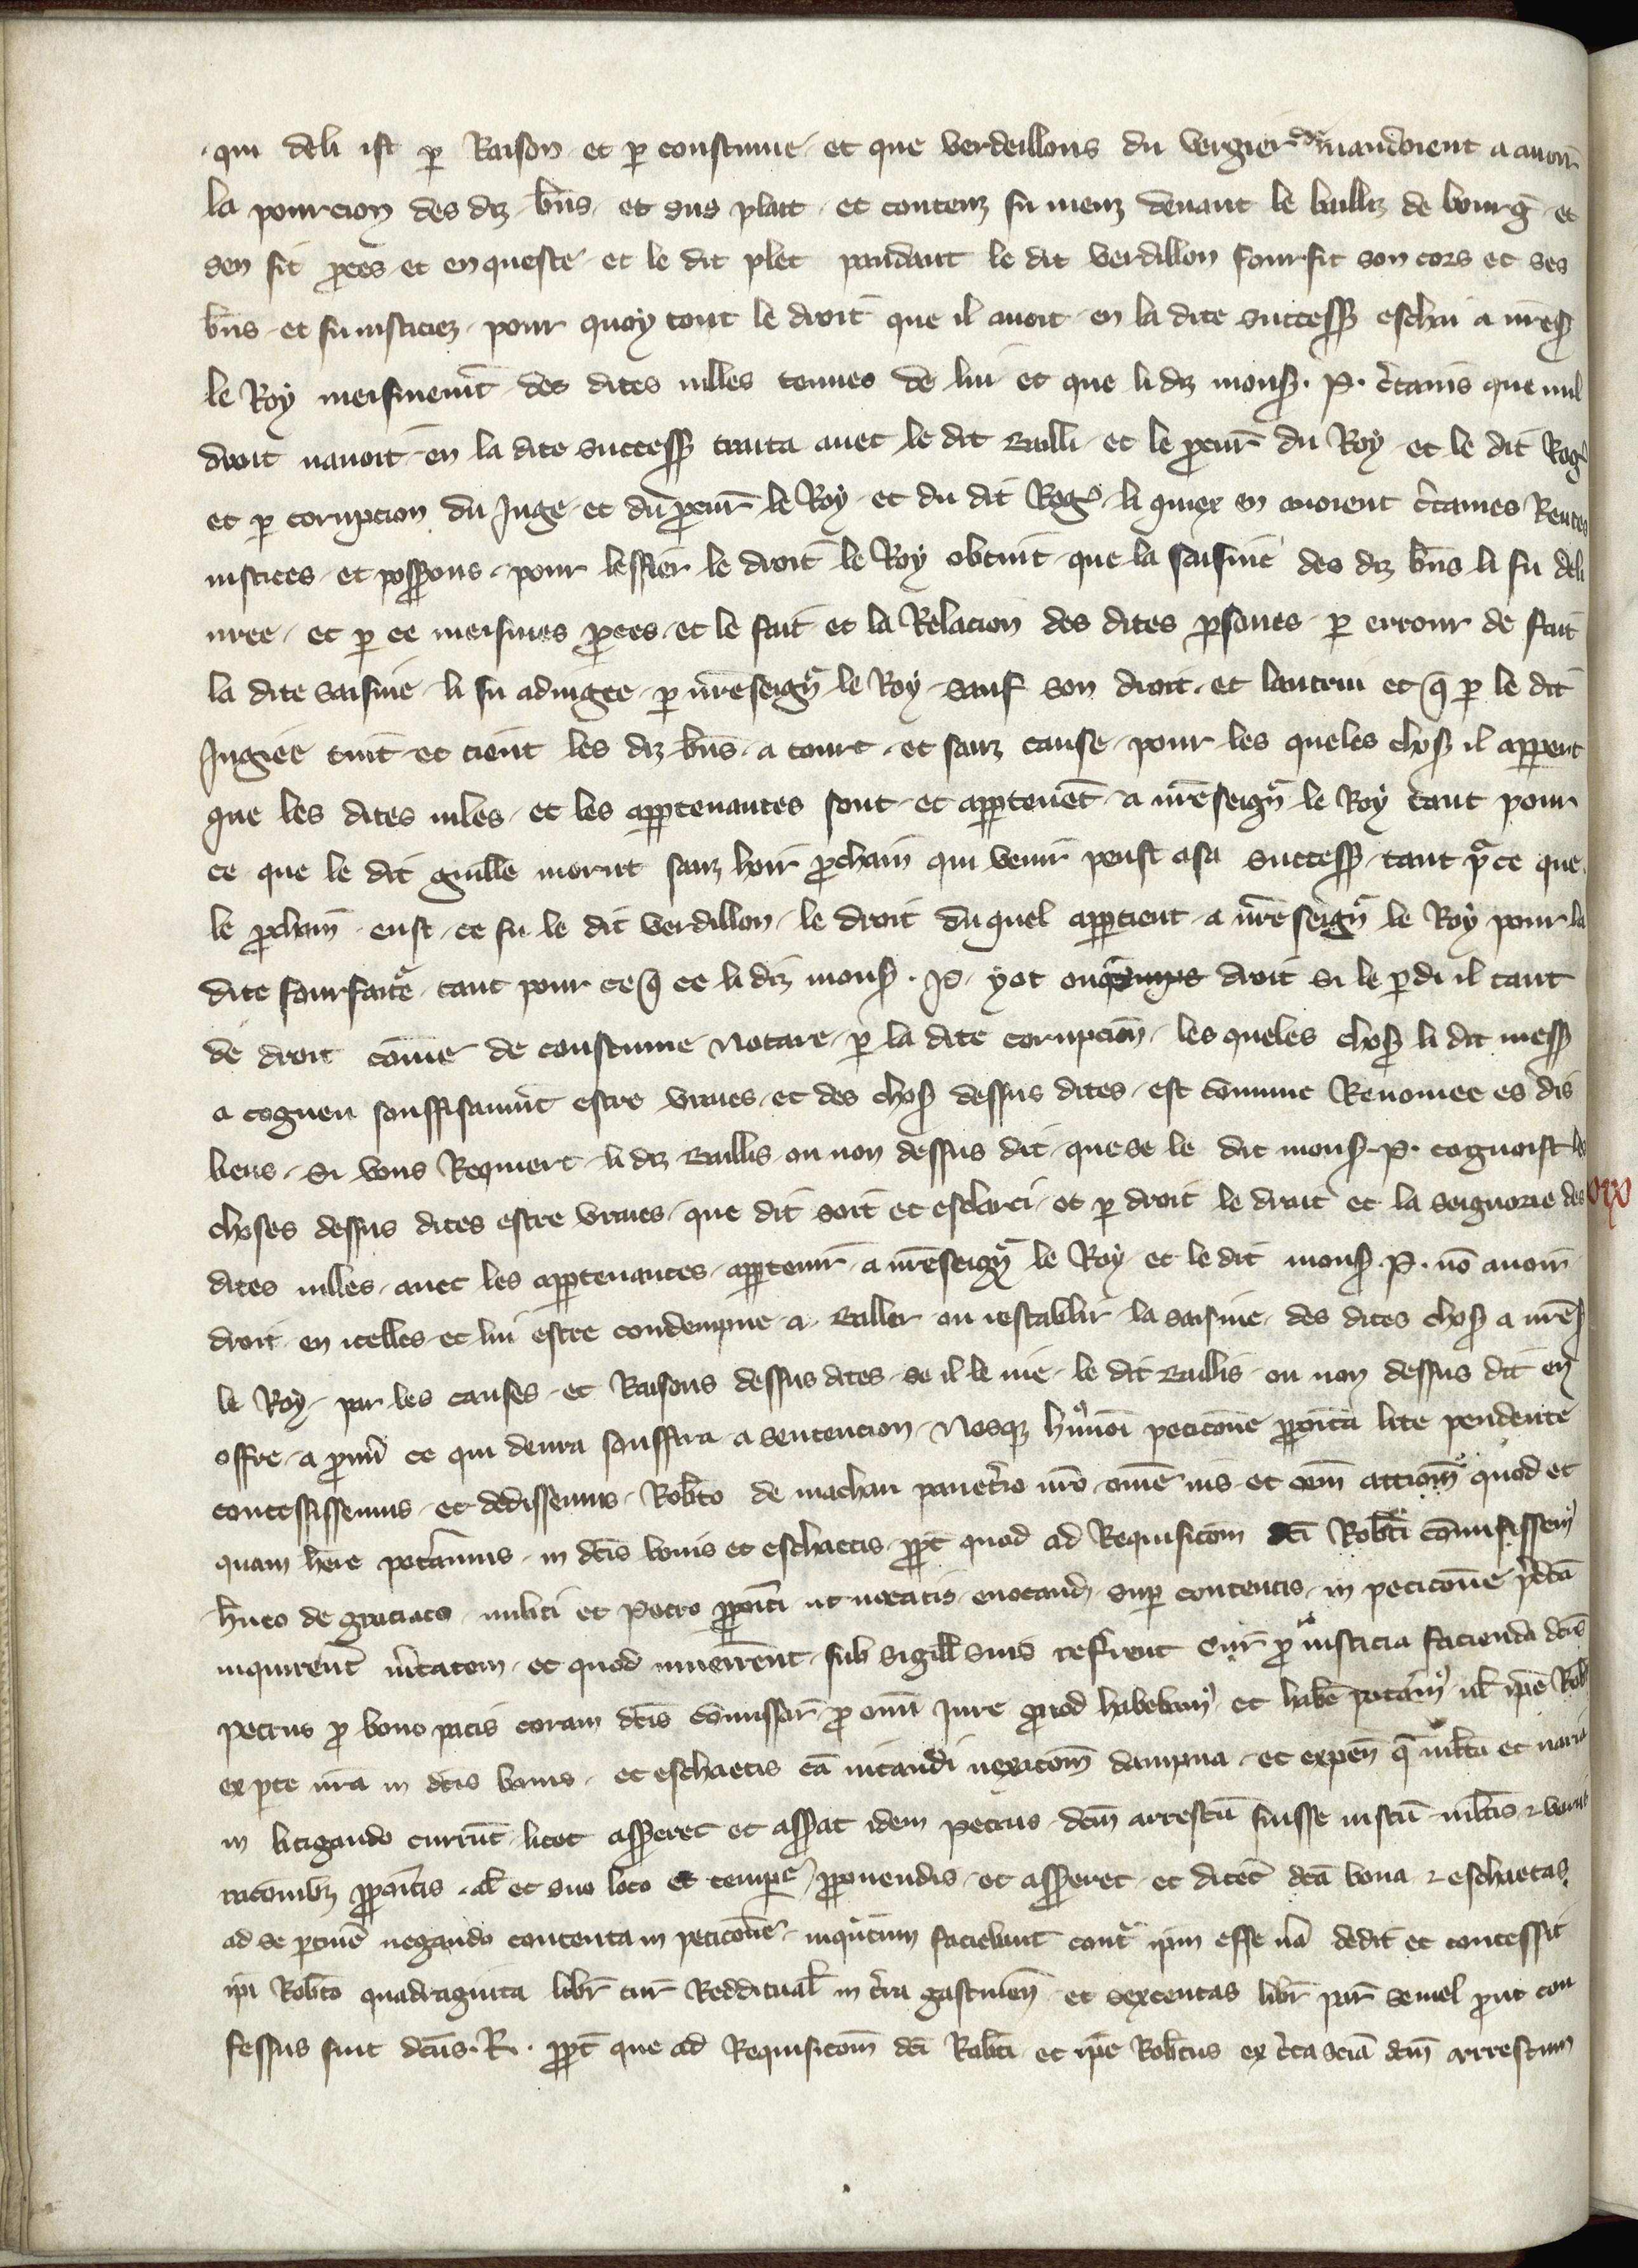 qui deli ist p Raison et p coustume et que verdeillons du vergier demandoient a auoir
la pourcion des diz bn̄s et sus plait et contenz fu menz deuant le bailliz de bourḡ et
sen fit proces et enqueste et le dit plet pandant le dit verdillon fourfit son cors et ses
bn̄s et fu iusticiez pour quoy tout le droit que il auoit en la dite success eschai a nr̄es
le Roy meismem̄t des dites uilles tenues de lui et que li diz mons. P. c̄tains que nul
droit nauoit en la dite success traita auec le dit Bailli et le procur̄ du Roy et le dit Rog̾
et p corrupcion du Juge et du procur̄ le Roy et du dit Rog̾ li quiex en auoient c̄taines Rentes
iustices et possons pour lessier le droit le Roy obtint que la saisine des diz bn̄s li fu deli
uree et p ce meismes proces et le fait et la Relacion des dites psones p errour de fait
la dite saisine li fu adiugee p nr̄eseign̄ le Roy sauf son droit et lautrui et q̄ p le dit
Jugiee tint et tient les diz bn̄s a tourt et sanz cause pour les queles chos il appent
que les dites uiles et les apptenantes sont et apptenēt a nr̄eseign̄ le Roy tant pour
ce que le dit guill̄e morut sanz hoir prochain qui venir peust a sa success tant pr ce que
le prochain eust ce fu le dit verdillon le droit du quel apptient a nr̄eseign̄ le Roy pour la
dite fourfaitē tant pour ce q̄ ce li diz mons. P. y ot onques droit si le pdi il tant
de droit com̄e de coustume notare p la dite corrupcion les queles chos li dit mess
a cogneu souffisaum̄t estre vraies et des chos dessus dites est com̄une Renomee es dis
lieus Si vous Requiert li diz Baillis ou non dessus dit que se le dit mons. P. cognoist les
choses dessus dites estre vraies que dit soit et esclarci et p droit le droit et la seignorie des
dites uilles auec les apptenances apptenir a nr̄eseign̄ le Roy et le dit mons. P. nō auoir
droit en icelles et lui estre condempne a Baillier ou restablir la saisine des dites chos a nr̄es
le Roy par les causes et Raisons dessus dites se il le nie le dit Baillis ou non dessus dit en
offre a prouu̾ ce qui deura souffira a sentencion Nosq̄ hm̄oi peticōne proposita lite pendente
concessissemus et dedissemus Rob̄to de machau panet̄io nr̄o om̄e ius et om̄ actiom̄ quod et
quam her̄e pot̄amus in dc̄is bonis et eschaetis propt̄ quod ad Requisitōm dc̄i Rob̄ti com̄isissem̾
hugo de graciaco militi et Petro ut uocatis euocand̄ sup contentis in peticōne p̄dc̄a
inquirent̄ ūitatem et quod inuen̄ent sub sigill̄ suis refr̄ent cur̄ pro iusticia facienda dc̄us
Petrus pro bono pacis coram dc̄is com̄issar̄ pro om̄i Jure quod habebam̾ et hab̄e pot̄am̾ ul̄ ip̄e Rob̄
ex pte nr̄a in dc̄is bonis et eschaetis cā uitandi uexatōm dampna et expen̄ q̄ ml̄ta et uaria
in litigando currūt licet assēeret et assēat idem petrus dc̄m arrestū fuisse iustū ml̄tis et bonis
racōnib̄z propositis al̄ et suo loco et tempē proponendis et assēeret et dicēt dc̄a bona et eschaetas
ad se ptinē negando contenta in peticōne inq̄ntum faciebant cont̄ ip̄m esse ūa dedit et concessit
ip̄i Rob̄to quadraginta libr̄ tur̄ Reddituāl in t̄ra gastinen̄ et sexcentas libr̄ par̄ semel prout con
fessus fuit dc̄us R. propt̄ que ad Requisitōm dc̄i Rob̄ti et ip̄e Rob̄tus ex c̄ta scīa dc̄m arrestum